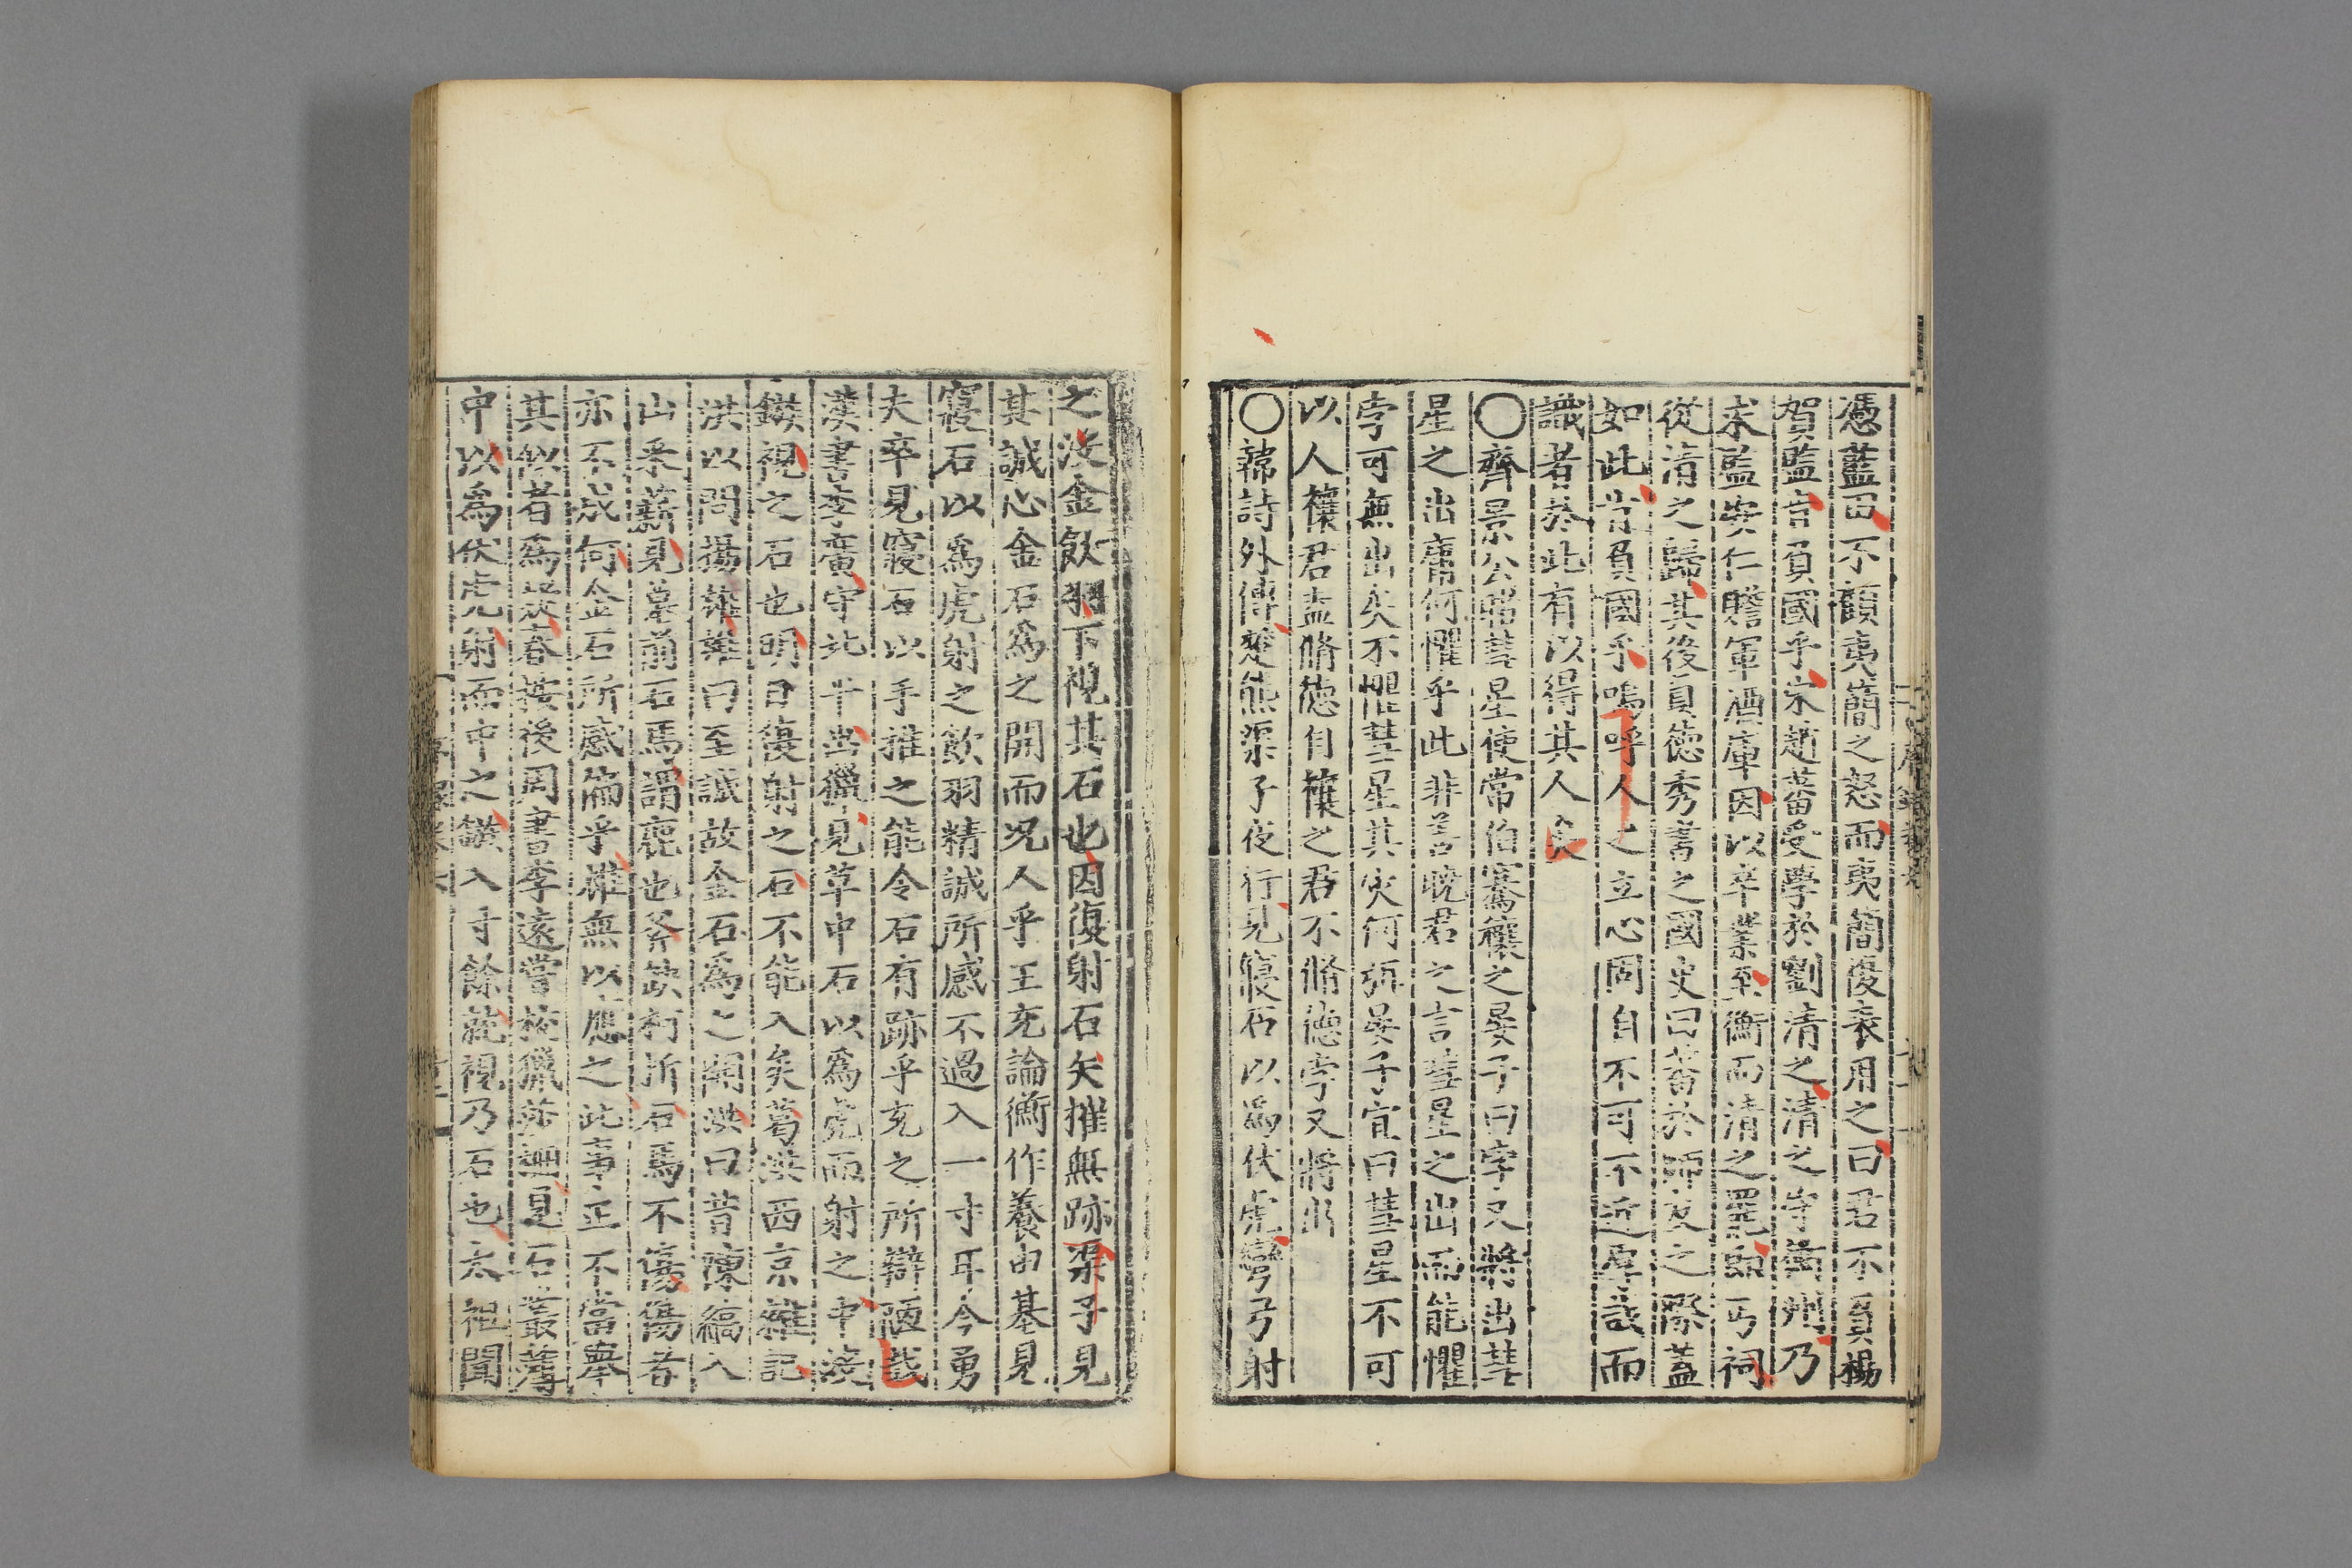 憑藍田不顧夷簡之怒而夷簡復表用之曰君不負楊
賀監肯負國乎宋趙蕃受學於劉清之清之守衡州乃
求監安仁贍軍酒庫因以卒業至衡而清之罷即丐祠
從清之歸其後真德秀書之國史曰蕃於師友之際蓋
如此肯負國乎嗚呼人之立心固自不可不近厚哉而
識者於此有以得其人矣
○齊景公睹彗星使常伯騫禳之晏子曰孛又將出彗
星之出庸何懼乎此非善曉君之言彗星之出而能懼
孛可無出矣不懼彗星其灾何弭晏子宜曰彗星不可
以人禳君盍脩德自禳之君不脩德孛又將出
○韓詩外傳楚熊渠子夜行見寢石以爲伏虎彎弓射
之沒金飲羽下視其石也因復射石矢摧無跡渠子見
其誠心金石爲之開而况人乎王充論衡作養由基見
寢石以爲虎射之飲羽精誠所感不過入一寸耳今勇
夫卒見寢石以手推之能令石有跡乎充之所辯陋哉
漢書李廣守北平出獵見草中石以爲虎而射之中沒
鏃視之石也明日復射之石不能入矣葛洪西京雜記
洪以問揚雄雄曰至誠故金石爲之開洪曰昔陳縞入
山采薪見墓前石馬謂鹿也斧缺柯折石馬不傷傷者
亦不成何金石所感偏乎雄無以應之此事正不當舉
其似者爲是客按後周書李遠嘗校獵莎柵見石叢薄
中以爲伏虎射而中之鏃入寸餘就視乃石也太祖聞